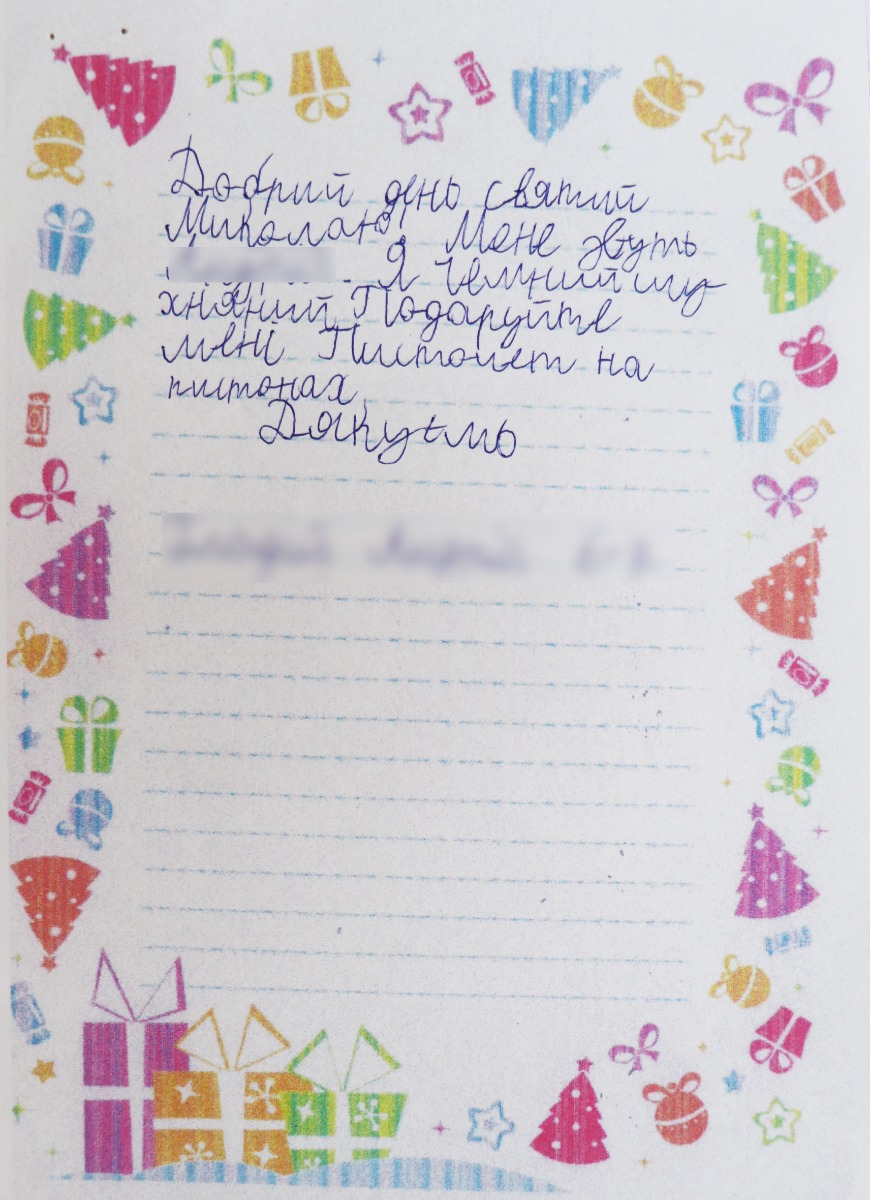 Добрий день святий
Миколаю, Мене звуть
Я чемний слу
хняний Подаруйте
мені Пистолет на
пистонах
Дякуємо